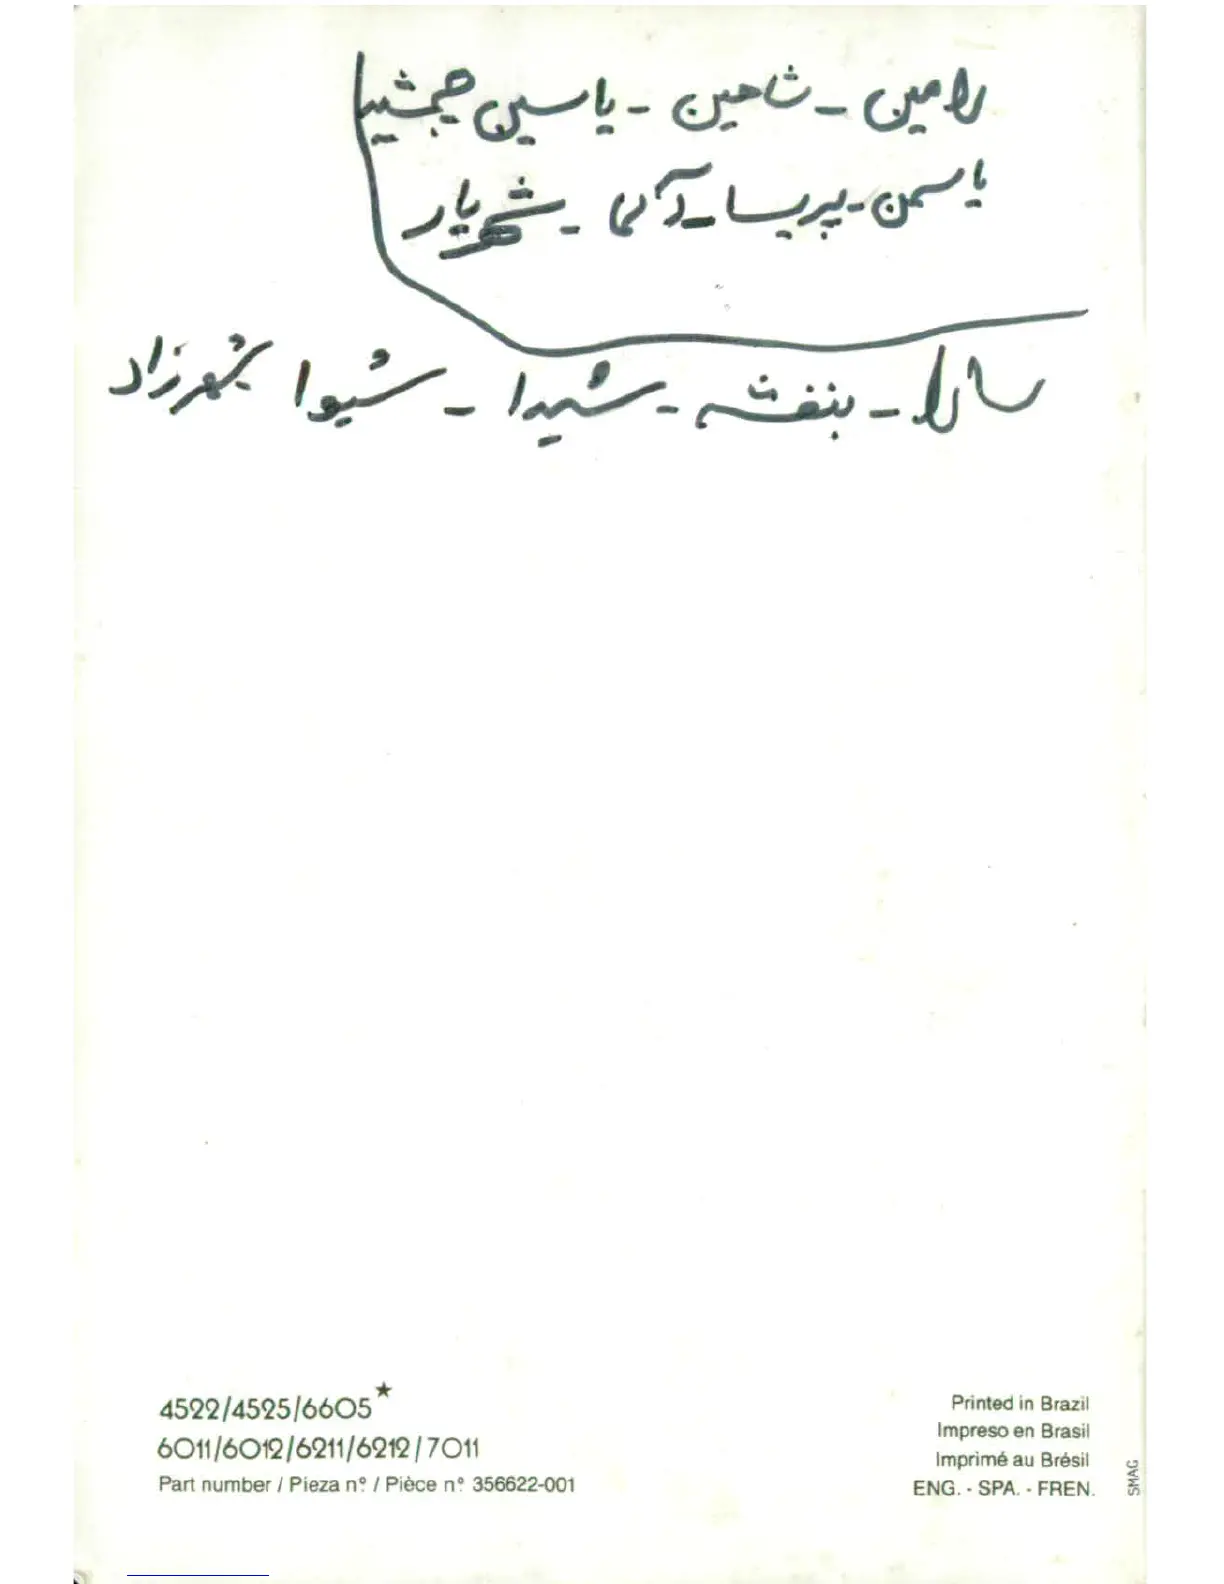 رامین - شاهین - یاسین جمشید
یاسمن - پریسا - آلما - شهریار
سارا - بنفشه - شیدا - شیوا شهرزاد
4522/4525/6605★
6011/6012/6211/6212/7011
Part number / Pieza n° / Pièce n° 356622-001
Printed in Brazil
Impreso en Brasil
Imprimé au Brésil
ENG. - SPA. - FREN.
SMAG